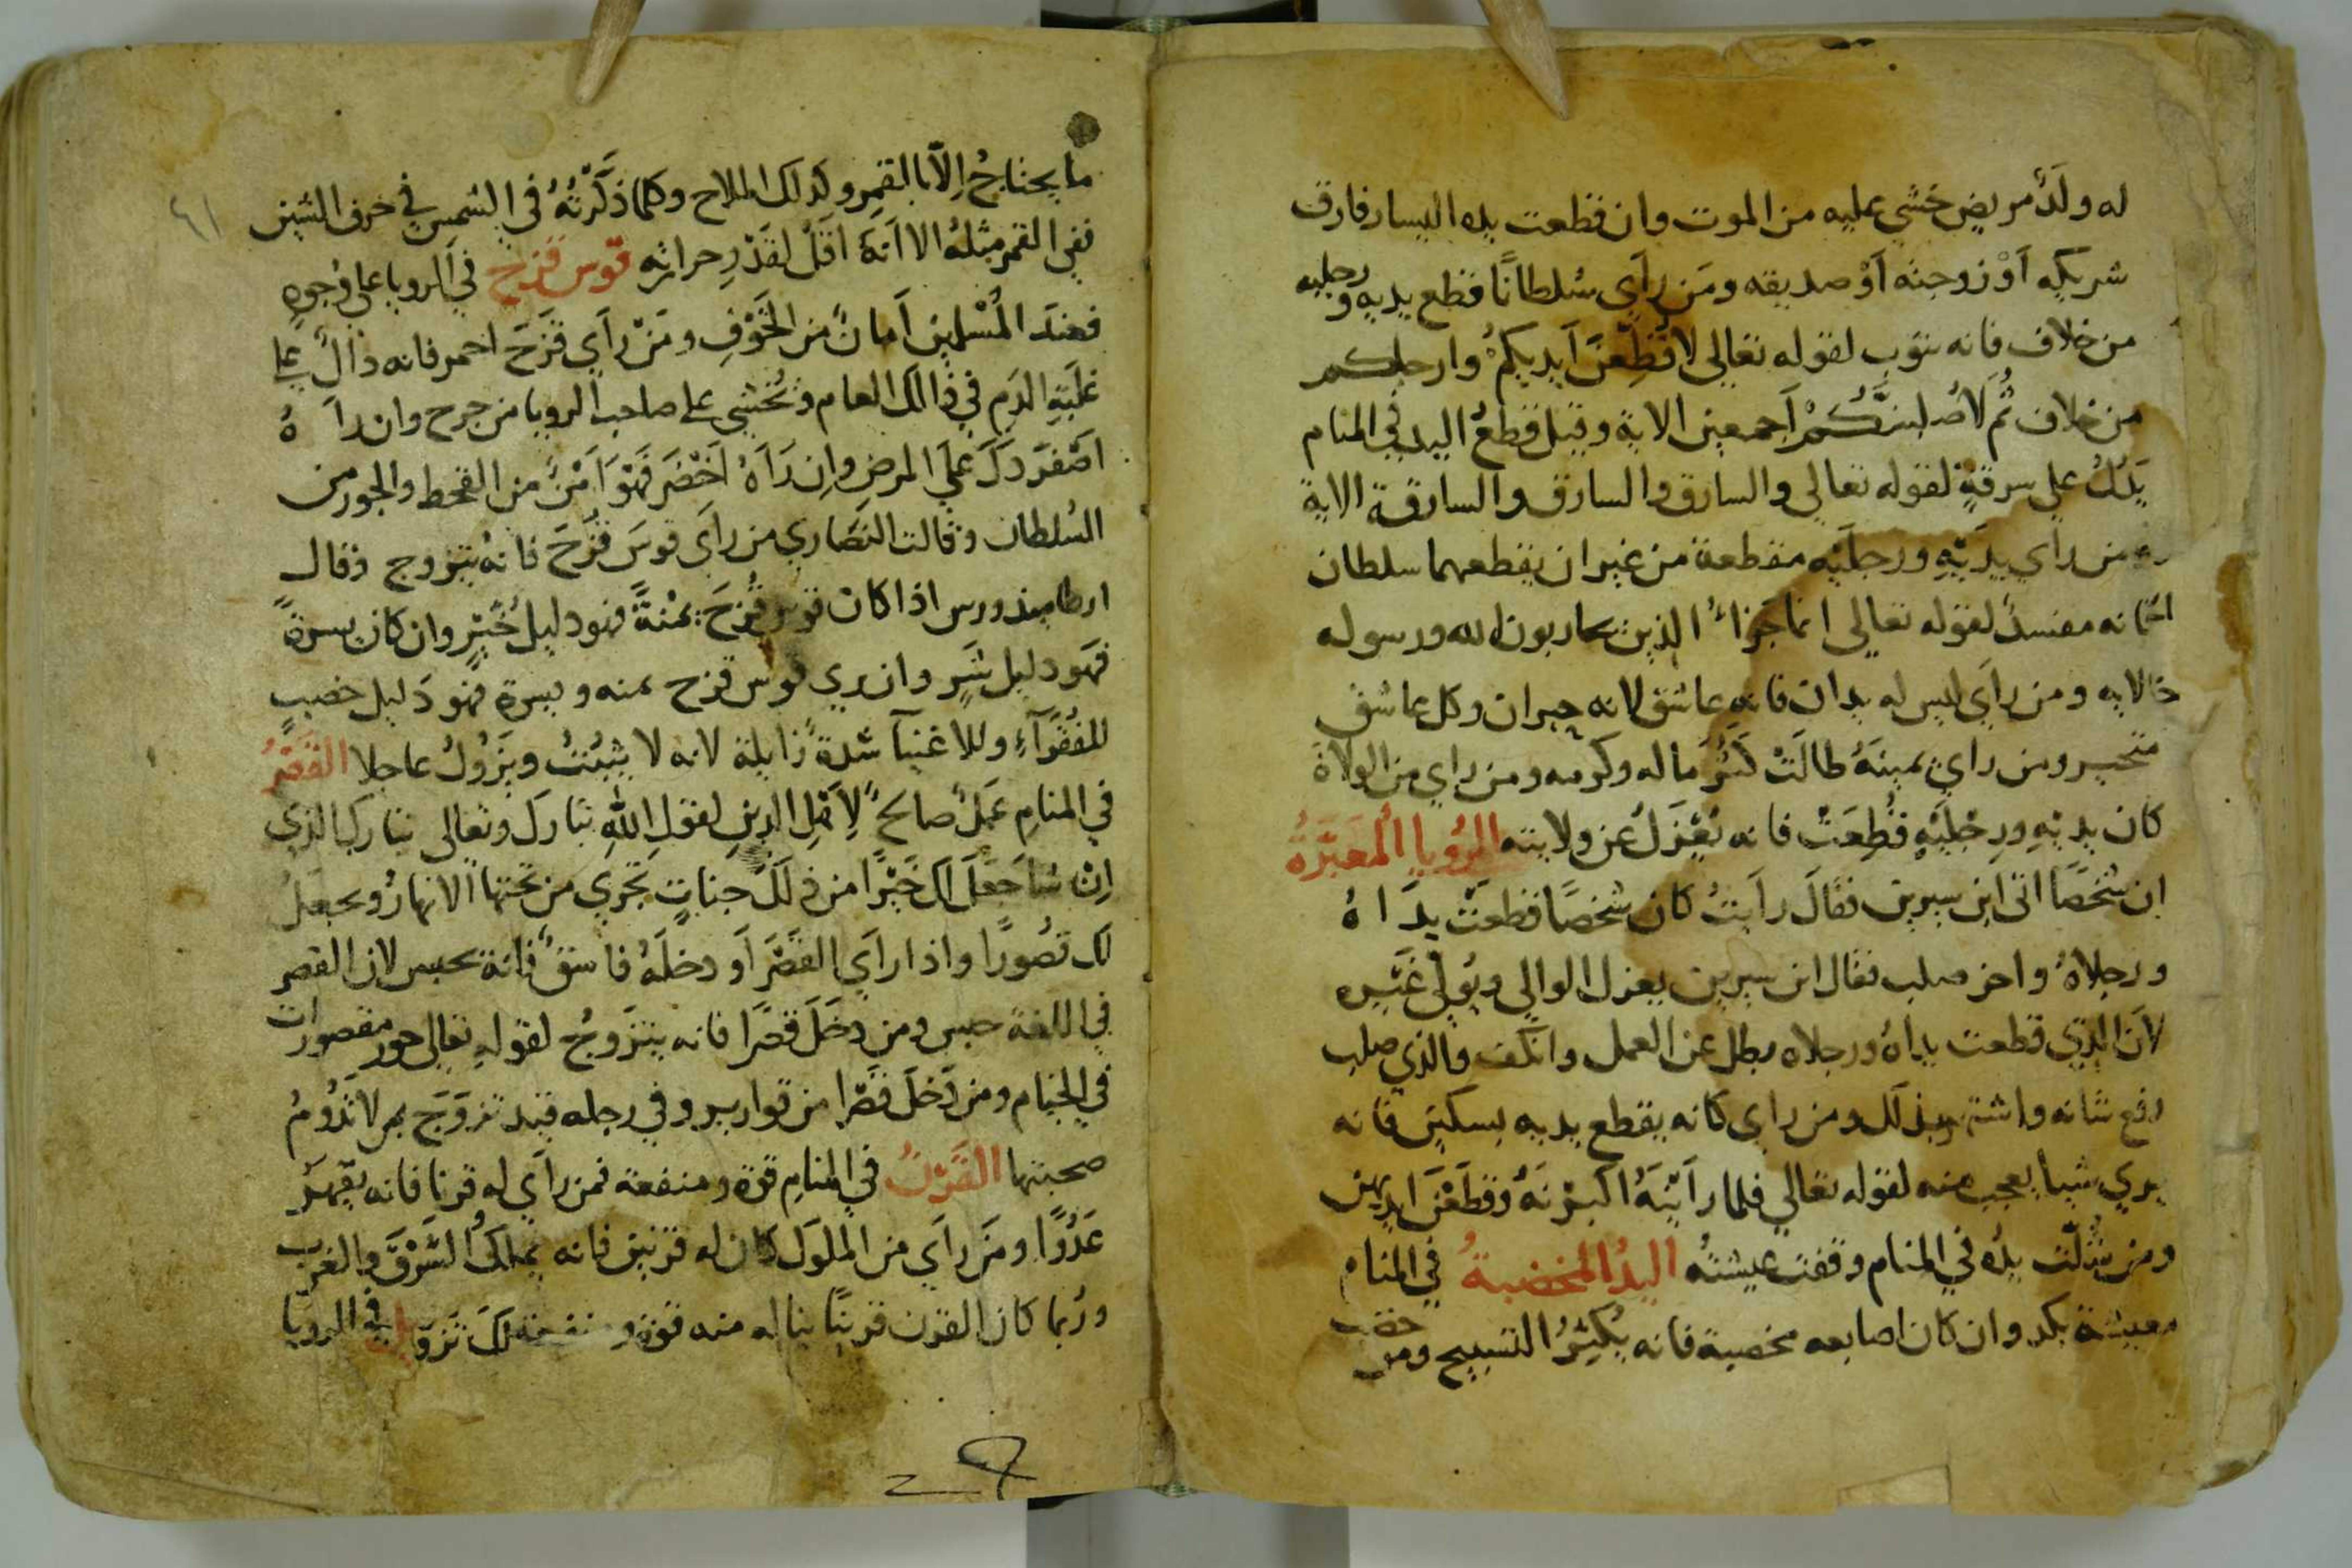 له ولدٌ مريض خشي عليه من الموت وان قطعت يده اليسار فارق
شريكه اَوْ زوجته اَوْ صديقه ومَن راَي سُلطانًا قطع يديه ورجليه
من خلاف فانه يتوب لقوله تعالى لاقطِّعنَّ اَيديكمْ وارجلكم
من خلاف ثُم لَاُصلبنَّكُمْ اَجمعين الاية وقيل قطعُ اليد في المنام
يَدُلُّ على سرقةٍ لقوله تعالي والسارق والسارق والسارقة الاية
ومن راي يدَيْهِ ورجلَيْه مقطعة من غير ان يقطعهما سلطان
فانه مفسدٌ لقوله تعالى انما جَزاءُ الذين يحاربون الله ورسوله
الايه ومن راَي ليس له يدان فانه عاشق لانه حيران وكل عاشق
متحير ومن راي يمينَهُ طالَتْ كَثُرَ ماله وكرمه ومن راي من الولاة
كان يديْهِ ورِجْلَيْهِ قُطِعَتْ فانه يُعْزَلُ عن ولايته الرُويا المُعَبَّرَةُ
ان شخصًا اتى ابن سيرين فقالَ رأيتُ كان شخصًا قطعَتْ يدَاهُ
ورجلاهُ واخر صلب فقال ابن سيرين يعزل الوالي ويُولّي غَيْره
لاَنَّ الذي قطعت يداهُ ورجلاه بطل عن العمل وانكف والذي صلب
رفع شانه واشتهر بذلك ومن راي كانه يقطع يديه بسكين فانه
يري شيأ يعجب منه لقوله تعالي فلما راَيْنَهُ اكبرْنَهُ وقطَعْنَ ايديهن
ومن شُلّت يدُه في المنام وقفت عيشتُه اليدُ المخضبةُ في المنام
معيشة بكد وان كان اصابعه مخضبة فانه يُكْثِرُ التسبيح ومن خضب
ما يحتاجُ اِلّا بالقمر وكذلك الملاح وكلما ذكَرْتُهُ في الشمس في حرف الشين
ففي القمر مثلهُ الا اَنهُ اقَلُّ لقَدْرِ حراثه قوس قزح في الرويا على وُجوهٍ
فعندَ المُسْلمين اَمانٌ من الخَوْفِ ومَنْ راَي قزَحَ احمر فانه دالٌّ علي
غلَبَةِ الدَمِ في ذالك العام وتُخشى علي صاحب الرويا من جرح وان راَهُ
اَصْفَرَ دَلَّ عَلَي المرض وان رَاَهُ اَخْضَرَ فَهْوَ اَمْنٌ من القحط والجور من
السُلطان وقالت النَصَاري من راَيَ قوسَ قُزَحَ فانهُ يتزوج وقال
ارطاميدورس اذا كان قوس قُزحَ يمْنةً فهو دليل خَيْرٍ وان كان يسرةً
فَهو دليل شرٍ وان ري قوس قزح يمنه ويسرة فهو دَليل خصبٍ
للفُقَرَآءِ وللاغنيآ شدةٌ زايلة لانه لا يثبُتُ ويَزُولُ عاجلا القَصْرُ
في المنامِ عَمَلٌ صالحٌ لِاَهْلِ الدينِ لقولِ اللهِ تبارك وتعالى تبارك الذي
اِنْ شاجَعَلَ لك خَيْرًا من ذلكَ جناتٍ تجْري من تحتها الانهارُ ويجعلْ
لك قُصُورًا واذا راَي القَصْرَ اَو دخلَهُ فاسقٌ فانَهُ يحبس لان القصر
في اللغة حبس ومن دخَلَ قصْرًا فانه يتزوجُ لقولهِ تعالى حور مقصورات
في الخيام ومن دَخلَ قصْرا من قوارير وفي رجله قيد تزوَجَ بمن لا تدُومُ
صحبتها القَرْنُ في المنامِ قوة ومنفعة فمن راَي له قرنا فانه يقهرُ
عَدُوًا ومَنْ راَي من الملوك كان له قرنين فانه يملكُ الشَرْقَ والغرب
ورُبما كان القرن قريْنًا يناله منه قوة ومنفعة في الرويا